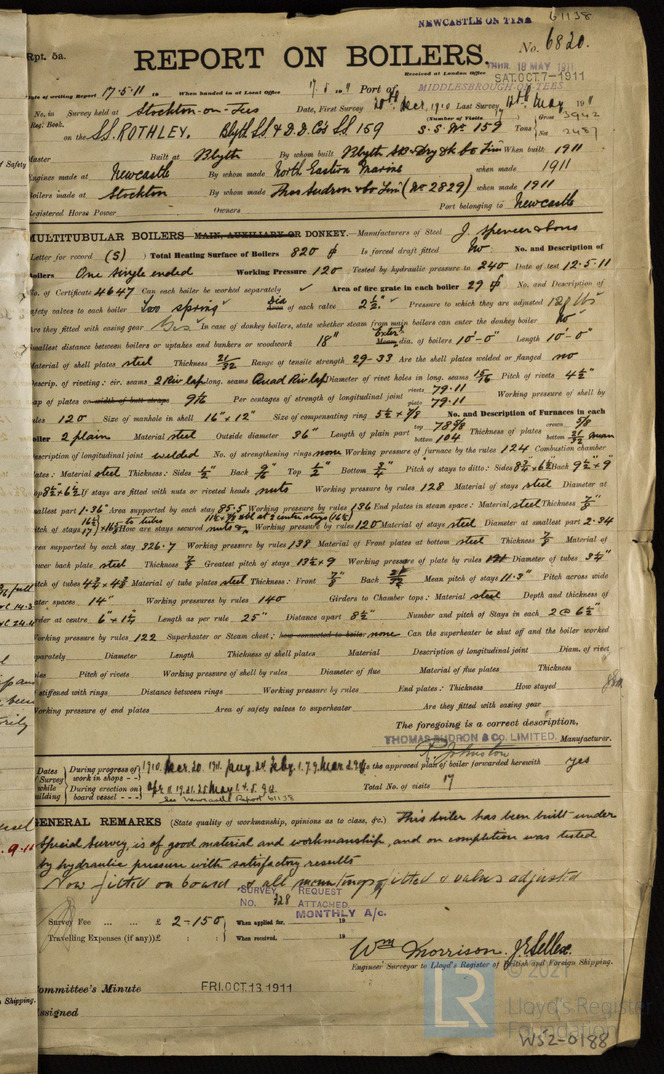 NEWCASTLE ON TYNE 61138
Rpt. 5a.
REPORT ON BOILERS. No. 6820.
Received at London Office THUR. 18 MAY 1911
SAT. OCT. 7-1911
Date of writing Report 17·5·11 19 When handed in at Local Office 19 Port of MIDDLESBROUGH-ON-TEES
No. in Survey held at Stockton-on-Tees Date, First Survey 20th Dec. 1910 Last Survey 12th May 1911
Reg. Book. (Number of Visits) Gross 3942
on the S.S. ROTHLEY. Blyth S.S. & D.D. Co's SS 159 S.S. No 159 Tons Net 2487
Master Built at Blyth By whom built When built 1911
Engines made at Newcastle By whom made North Eastern Marine when made 1911
Boilers made at Stockton By whom made Thos Sudron & Co Lim (No 2829) when made 1911
Registered Horse Power Owners Port belonging to Newcastle
MULTITUBULAR BOILERS MAIN, AUXILIARY OR DONKEY.—Manufacturers of Steel J. Spencer & Sons
Letter for record (S) Total Heating Surface of Boilers 820 Is forced draft fitted No No. and Description of
Boilers One single ended Working Pressure 120 Tested by hydraulic pressure to 240 Date of test 12·5·11
No. of Certificate 4647 Can each boiler be worked separately Area of fire grate in each boiler 29 No. and Description of
safety valves to each boiler Two spring Dia of each valve 2½" Pressure to which they are adjusted
Are they fitted with easing gear Yes In case of donkey boilers, state whether steam from main boilers can enter the donkey boiler No
Smallest distance between boilers or uptakes and bunkers or woodwork 18" dia. of boilers 10'-0" Length 10'-0"
Material of shell plates steel Thickness 21/32 Range of tensile strength 29-33 Are the shell plates welded or flanged no
Descrip. of riveting: cir. seams 2 Riv lap long. seams Quad Riv lap Diameter of rivet holes in long. seams 15/16 Pitch of rivets 4½"
Lap of plates or width of butt straps 9½ Per centages of strength of longitudinal joint rivets 79·11 plate 79·11 Working pressure of shell by
rules 120 Size of manhole in shell 16" × 12" Size of compensating ring 5½ × 7/8 No. and Description of Furnaces in each
boiler 2 plain Material steel Outside diameter 36" Length of plain part top 78⅝ bottom 104 Thickness of plates crown 5/8 bottom 21/32
Description of longitudinal joint welded No. of strengthening rings none Working pressure of furnace by the rules 124 Combustion chamber
plates: Material steel Thickness: Sides ½" Back 9/16 Top ½" Bottom ¾ Pitch of stays to ditto: Sides Back 9½ × 9
If stays are fitted with nuts or riveted heads nuts Working pressure by rules 128 Material of stays steel Diameter at
smallest part 1·36" Area supported by each stay 85·5 Working pressure by rules 136 End plates in steam space: Material steel Thickness 7/8
Pitch of stays How are stays secured Working pressure by rules 120 Material of stays steel Diameter at smallest part 2·34
Area supported by each stay 326·7 Working pressure by rules 138 Material of Front plates at bottom steel Thickness 7/8 Material of
Lower back plate steel Thickness 7/8 Greatest pitch of stays 13½ × 9 Working pressure of plate by rules Diameter of tubes 3½"
Pitch of tubes 4½ × 4⅜ Material of tube plates steel Thickness: Front 7/8 Back Mean pitch of stays 11·3" Pitch across wide
water spaces 14" Working pressures by rules 140 Girders to Chamber tops: Material steel Depth and thickness of
girder at centre 6" × 1½ Length as per rule 25" Distance apart 8½ Number and pitch of Stays in each 2 @ 6½"
Working pressure by rules 122 Superheater or Steam chest; how connected to boiler none Can the superheater be shut off and the boiler worked
separately Diameter Length Thickness of shell plates Material Description of longitudinal joint Diam. of rivet
holes Pitch of rivets Working pressure of shell by rules Diameter of flue Material of flue plates Thickness
If stiffened with rings Distance between rings Working pressure by rules End plates: Thickness How stayed
Working pressure of end plates Area of safety valves to superheater Are they fitted with easing gear
The foregoing is a correct description,
THOMAS SUDRON & CO. LIMITED. Manufacturer.
R. Johnston
Dates of Survey while building During progress of work in shops - - to the approved plan of boiler forwarded herewith yes
During erection on board vessel - - - Total No. of visits 17
See Newcastle Report 61138
GENERAL REMARKS (State quality of workmanship, opinions as to class, &c.) This boiler has been built under
Special Survey, is of good material and workmanship, and on completion was tested
by hydraulic pressure with satisfactory results
Now fitted on board & all mountings fitted & valves adjusted
SURVEY REQUEST
No. 328 ATTACHED.
MONTHLY A/c.
Survey Fee ... ... £ 2-15 0 When applied for, 19
Travelling Expenses (if any) £ : : When received, 19
Wm Morrison.
Engineer Surveyor to Lloyd's Register of British and Foreign Shipping.
Committee's Minute FRI. OCT. 13. 1911
Assigned
LR © 2021
Lloyd's Register
Foundation
W52-0188